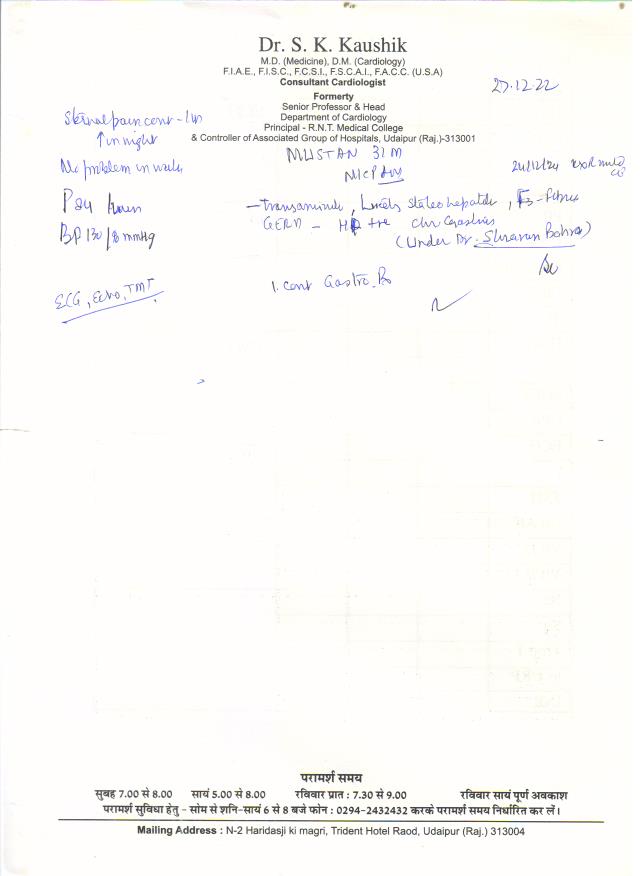 Dr. S. K. Kaushik
M.D. (Medicine), D.M. (Cardiology)
F.I.A.E., F.I.S.C., F.C.S.I., F.S.C.A.I., F.A.C.C. (U.S.A)
Consultant Cardiologist
27.12.22
Formerty
Senior Professor & Head
Department of Cardiology
Principal - R.N.T. Medical College
& Controller of Associated Group of Hospitals, Udaipur (Raj.)-313001
Sternal pain cent -
↑ in night
No problem in walk
MUSTAN 32 M
P 84
BP 130/8 mmHg
- transaminitis, Likely steatohepatitis, F3 - Fibrosis
GERD - +ve chr
(Under Dr. Shravan Bohra)
ECG, Echo, TMT
1. cont Gastro. Rx
परामर्श समय
सुबह 7.00 से 8.00 सायं 5.00 से 8.00 रविवार प्रात : 7.30 से 9.00 रविवार सायं पूर्ण अवकाश
परामर्श सुविधा हेतु - सोम से शनि-सायं 6 से 8 बजे फोन : 0294-2432432 करके परामर्श समय निर्धारित कर लें।
Mailing Address : N-2 Haridasji ki magri, Trident Hotel Raod, Udaipur (Raj.) 313004